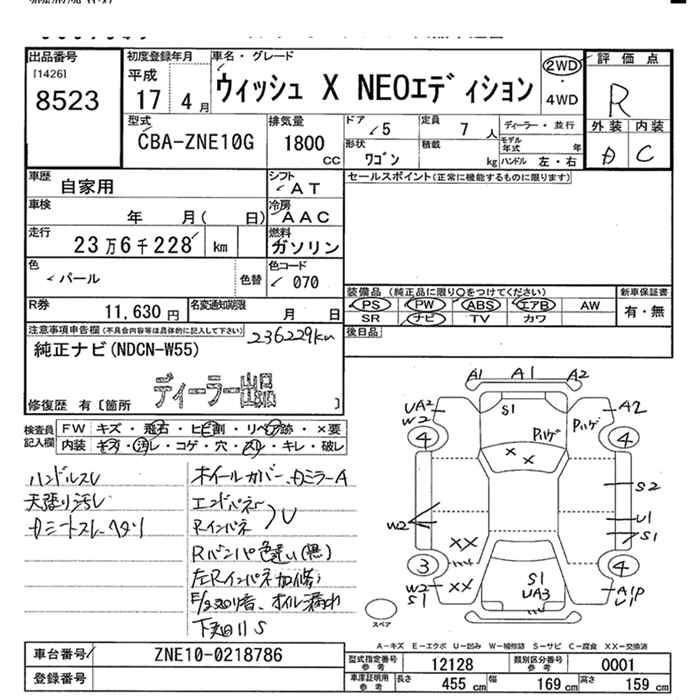 出品番号
[1426]
8523
初度登録年月
平成
17 4 月
車名・グレード
ウィッシュ X NEOエディション
2WD
・
4WD
評価点
R
外装 内装
A C
型式
CBA-ZNE10G
排気量
1800
cc
ドア
5
定員
7 人
ディーラー・並行
形状
ワゴン
積載
kg
モデル年式
年
ハンドル 左・右
車歴
自家用
シフト
AT
セールスポイント(正常に機能するものに限ります)
車検
年 月( 日)
冷房
AAC
走行
23万6千228 km
燃料
ガソリン
色
パール
色替
色コード
070
装備品 (純正品に限り○をつけてください)
新車保証書
PS PW ABS エアB AW
SR ナビ TV カワ
有・無
R券
11,630 円
名変通知期限
月 日
後日品
注意事項申告欄(不具合内容等は具体的に記入して下さい)
236229km
純正ナビ(NDCN-W55)
ディーラー出品
修復歴 有〔箇所 〕
検査員記入欄
FW キズ・飛石・ヒビ割・リペア跡・×要
内装 キズ・汚レ・コゲ・穴・スレ・キレ・破レ
ハンドルスレ
天張り汚レ
ホイールカバー、
エンドパネル
Rインパネ
U
Rバンパ色違い(無)
下廻りS
A1 A1 A2
S1
UA2
W2
A2
4 4
Pハゲ
Pハゲ
X X
S2
W2
U1
S1
XX
3 4
XX
W2
S1
S1
UA3
A1P
U1
スペア
A-キズ E-エクボ U-凹み W-補修跡 S-サビ C-腐食 XX-交換済
車台番号
ZNE10-0218786
登録番号
型式指定番号
参考
12128
類別区分番号
参考
0001
車庫証明用
参考
長さ 455 cm 幅 169 cm 高さ 159 cm